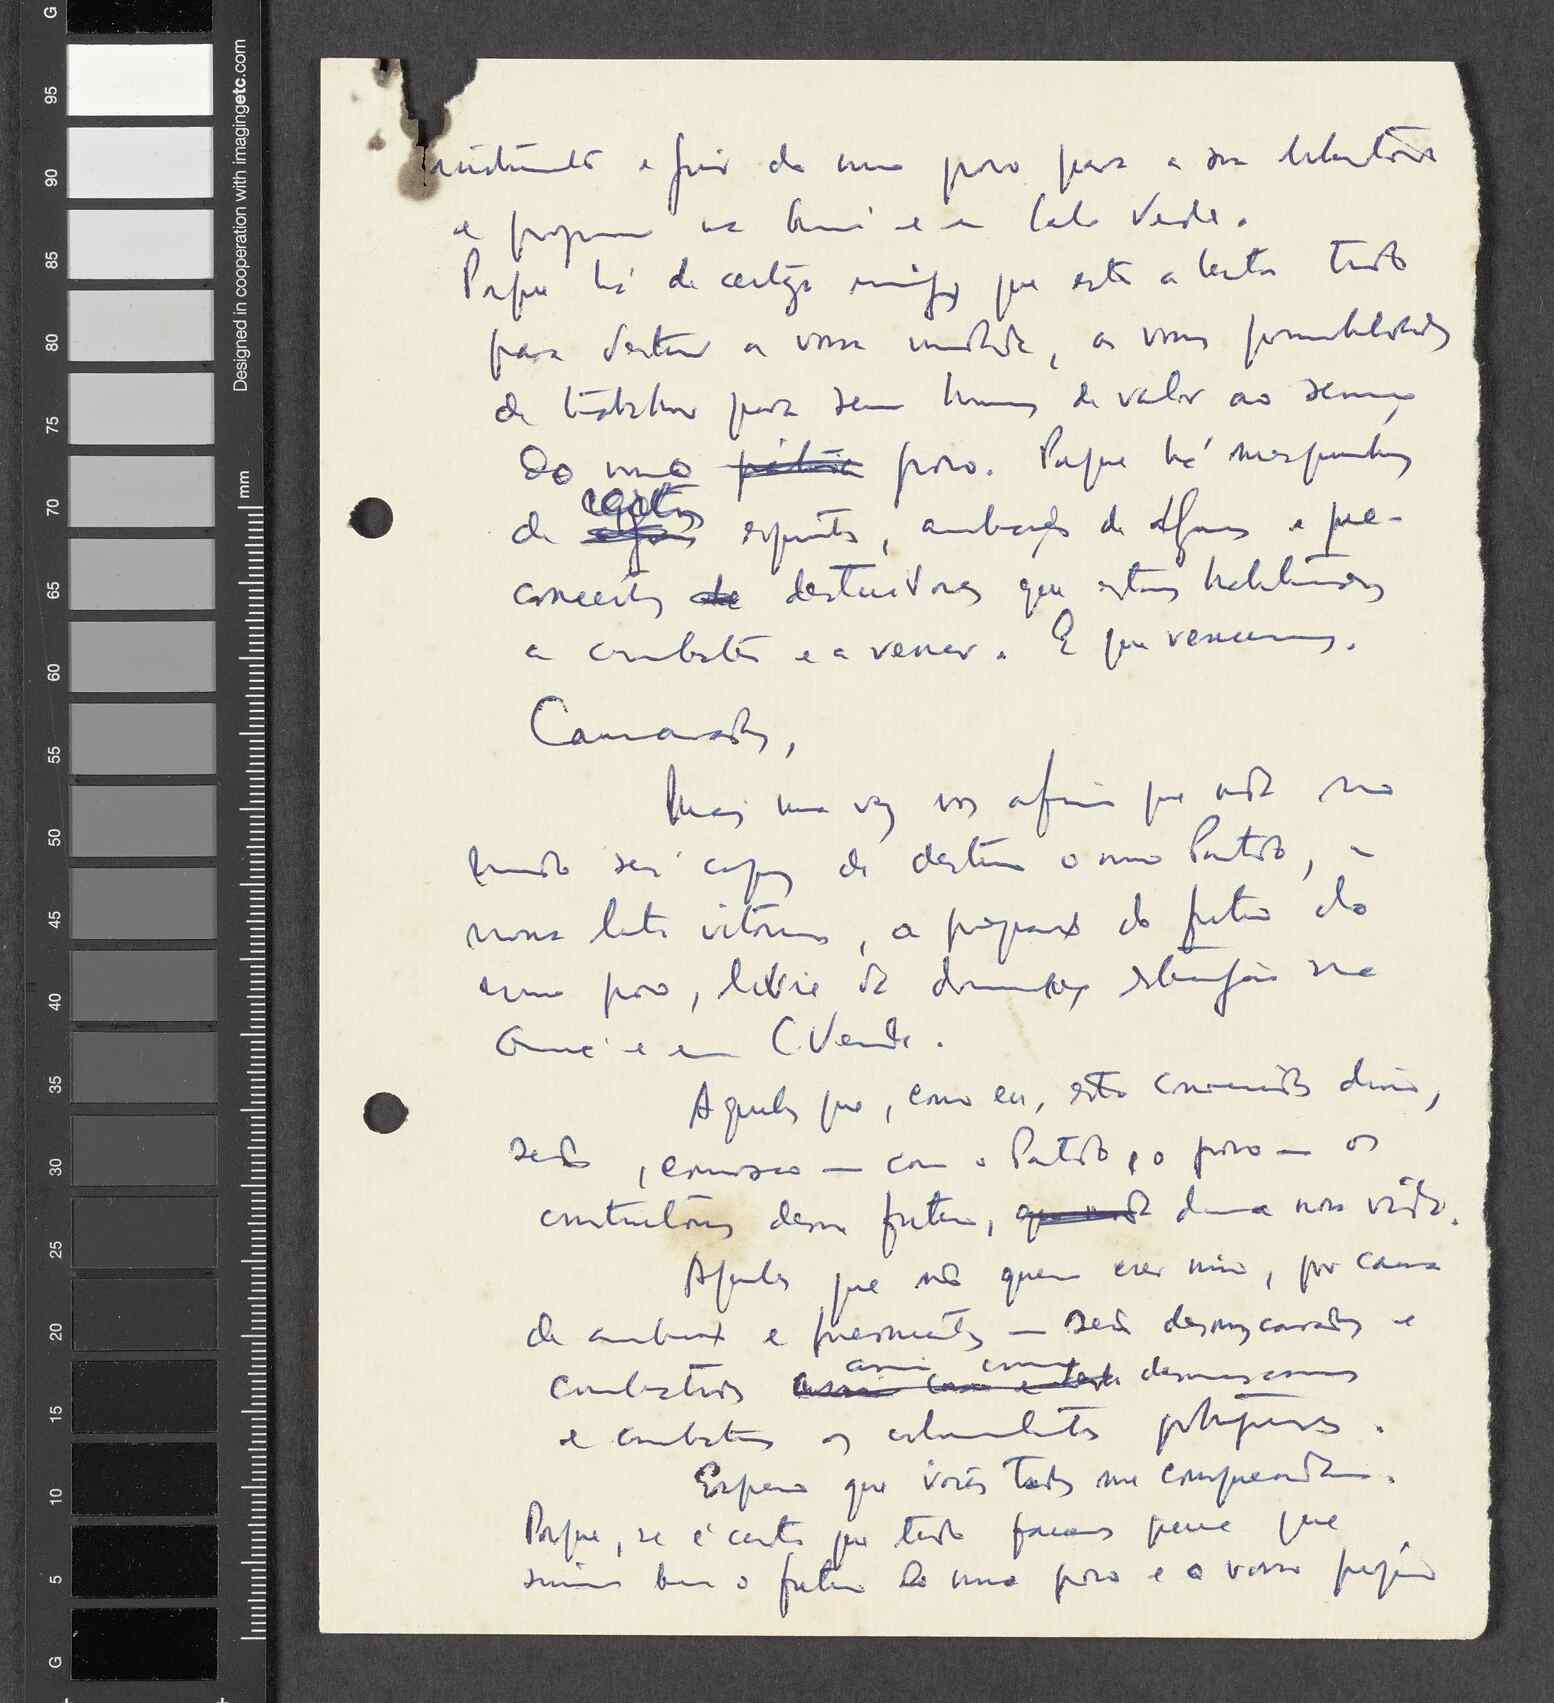 G
95
90
85
80
75
70
65
60
55
50
45
40
35
30
25
20
15
10
5
G
Designed in cooperation with imagingetc.com
mm
e do nosso povo para a sua
e na Guiné e em Cabo Verde.
Porque há de certeza que está a tentar tudo
para destruir a vossa unidade, as vossas possibilidades
de trabalhar para serem homens de valor ao serviço
do nosso pátria povo. Porque há mesquinhez
de certos espíritos, ambições de alguns e pre-
conceitos de destruidores que estamos habituados
a combater e a vencer. E que venceremos.
Camaradas,
Mais uma vez vos afirmo que nada no
mundo será capaz de destruir o nosso Partido, a
nossa luta vitoriosa, a preparação do futuro do
nosso povo, livre da dominação estrangeira na
Guiné e em C. Verde.
Aqueles que, como eu, estão convencidos disso,
serão, connosco — com o Partido e o povo — os
construtores desse futuro, que nada duma nova vida.
Aqueles que não querem crer nisso, por causa
de ambição e preconceitos — serão desmascarados e
combatidos assim como desmascaramos
e combatemos os colonialistas portugueses.
Espero que vocês todos me compreendam.
Porque, se é certo que tudo faremos para que
sirvam bem o futuro do nosso povo e o vosso próprio